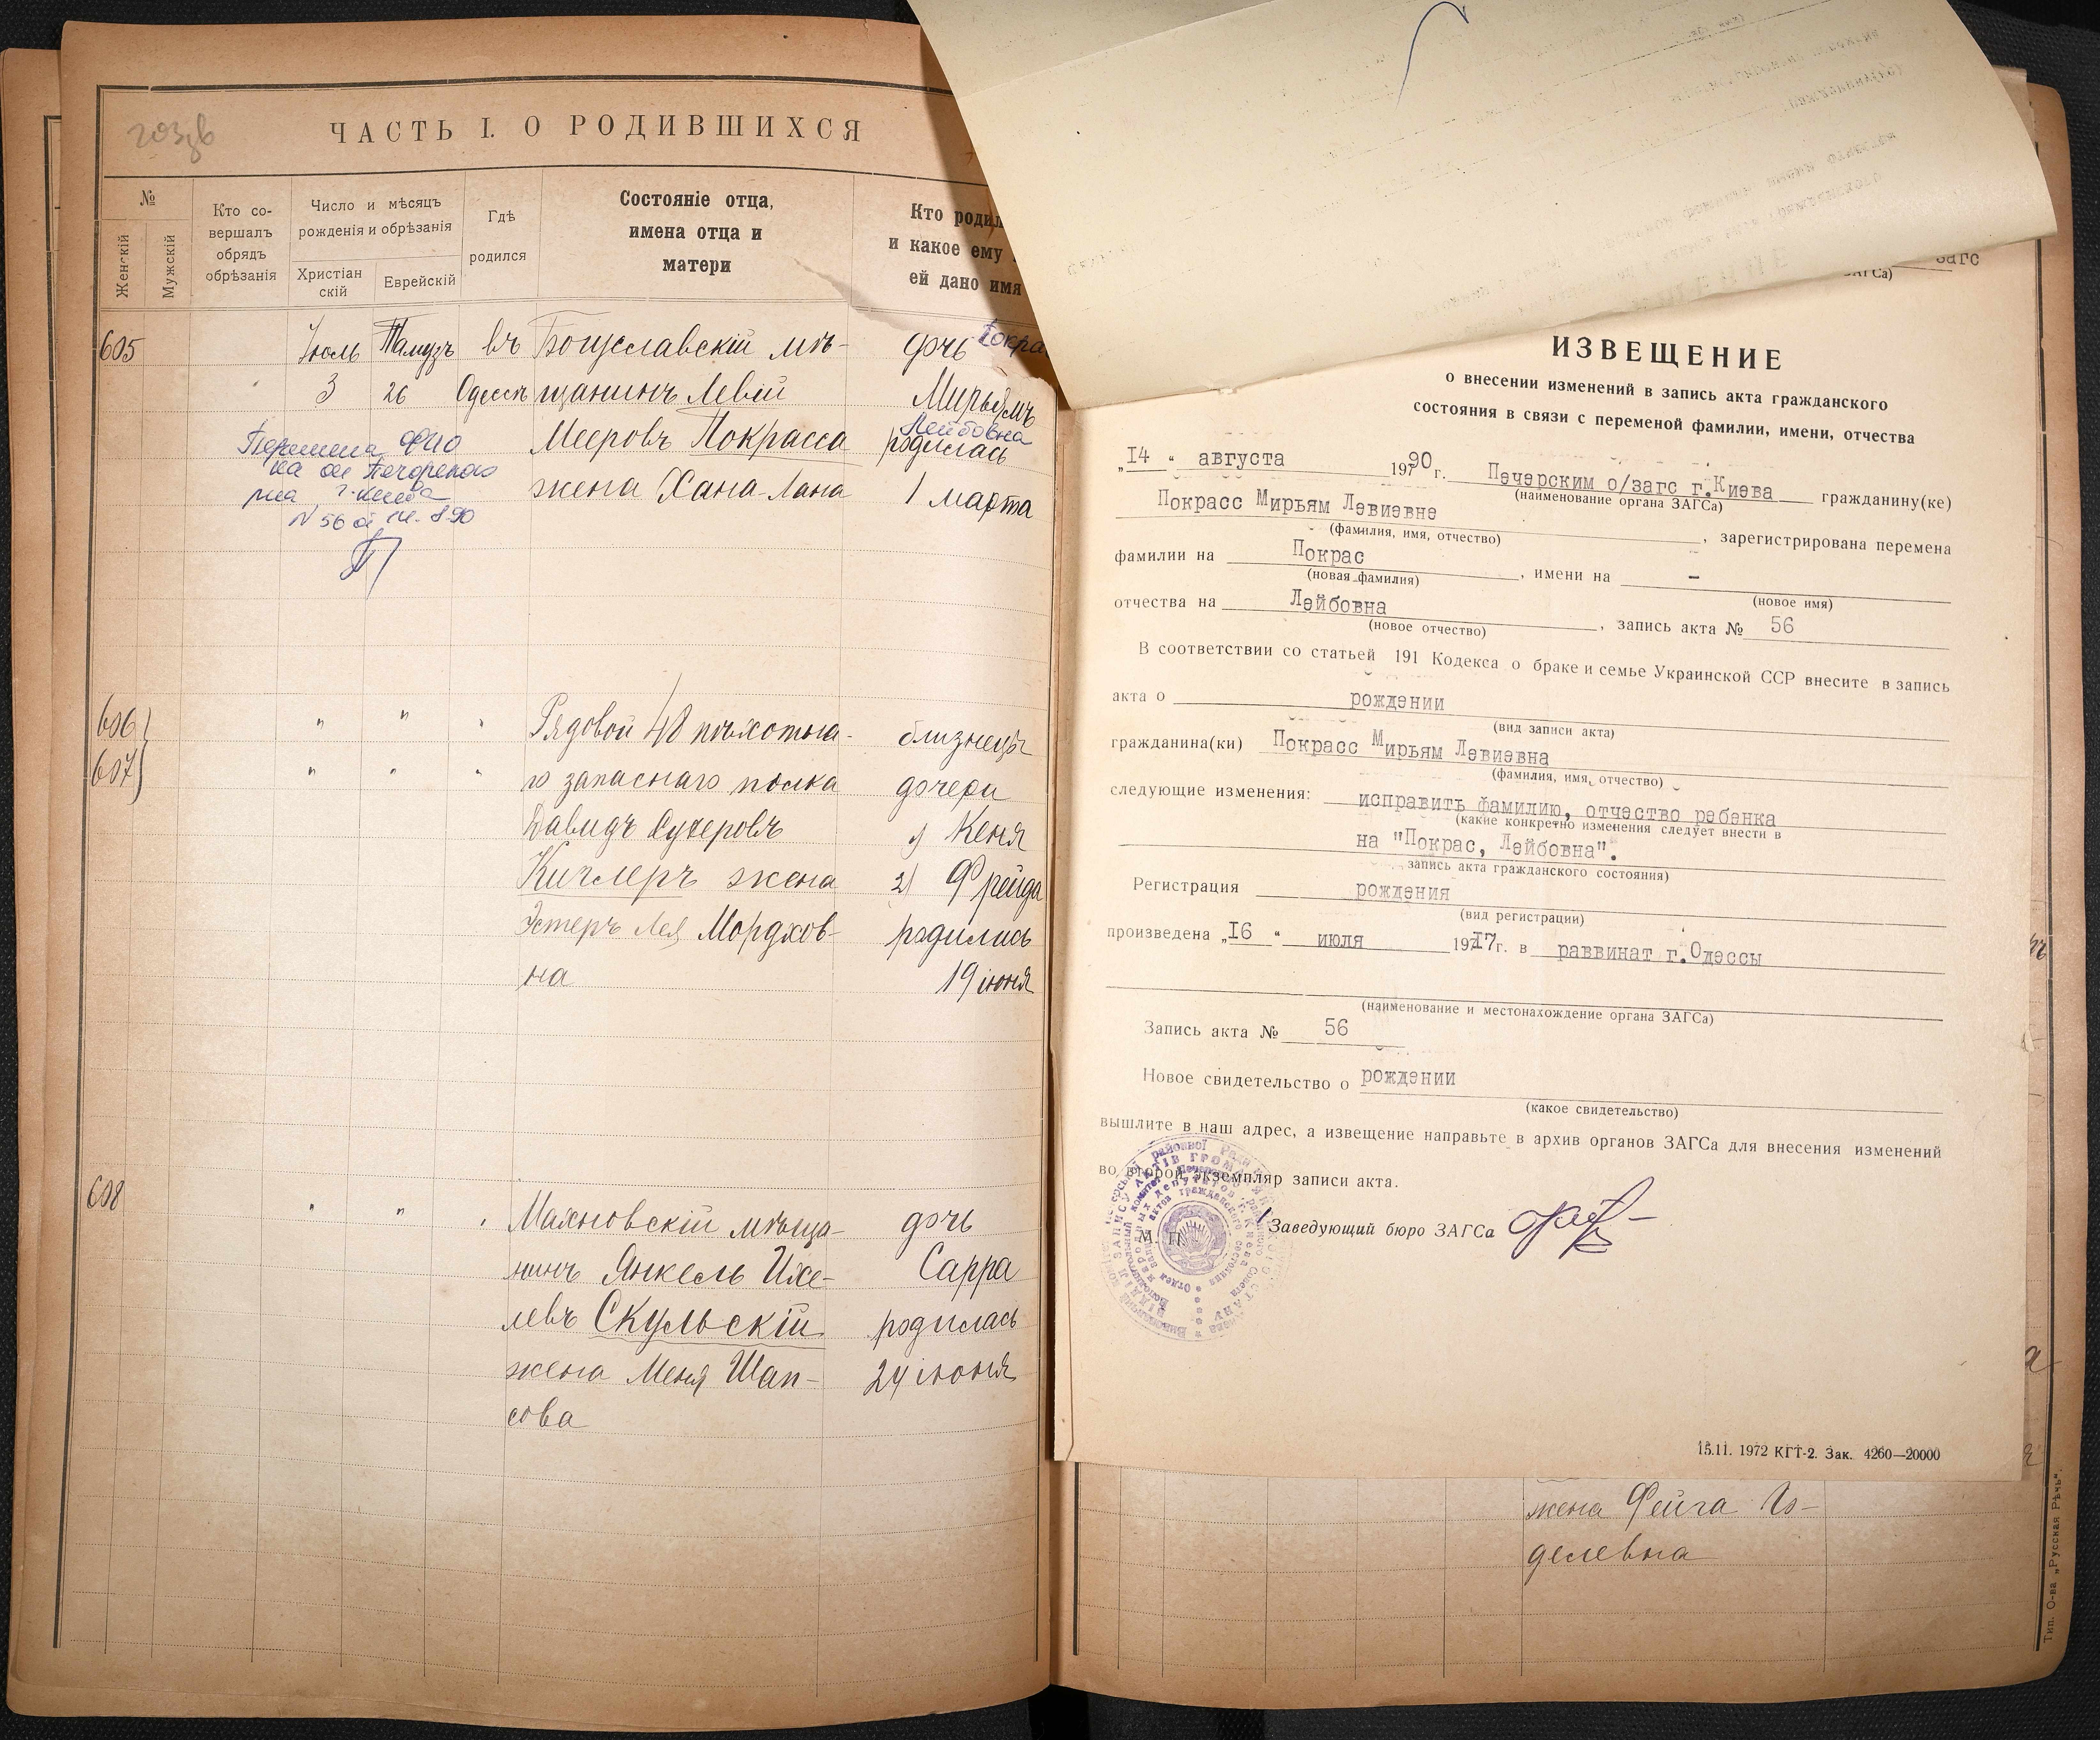 ЧАСТЬ I. О РОДИВШИХСЯ
№
Женскій
Мужскій
Кто со-
вершалъ
обрядъ
обрѣзанія
Число и мѣсяцъ
рожденія и обрѣзанія
Христіан
скій
Еврейскій
Гдѣ
родился
Состояніе отца,
имена отца и
матери
Кто родил
и какое ему
ей дано имя
605 Іюль Тамузъ въ Богуславскій мѣ- дочь Покра
3 26 Одессѣ щанинъ Левій Мирьямъ
Лейбовна
Мееровъ Покрасса родилась
жена Хана-Лана 1 марта
Перемена ФИО
на ос Печорского
г. Киева
N 56 от 14. 8 90
606 " " " Рядовой 48 пѣхотна- близнецы
607 " " " го запаснаго полка дочери
Давидъ Сухеровъ 1) Кеня
Кичлеръ жена 2) Фрейда
Эстеръ Лея Мордхов- родились
на 19 іюня
608 " " " Махновскій мѣща- дочь
нинъ Янкель Ихе- Сарра
левъ Скульскій родилась
жена Меня Шап- 24 іюня
сова
загс
ЗАГСа)
ИЗВЕЩЕНИЕ
о внесении изменений в запись акта гражданского
состояния в связи с переменой фамилии, имени, отчества
„14 “ августа 19790 г. Печерским о/загс г.Киева гражданину(ке)
(наименование органа ЗАГСа)
Покрасс Мирьям Левиевне , зарегистрирована перемена
(фамилия, имя, отчество)
фамилии на Покрас , имени на –
(новая фамилия) (новое имя)
отчества на Лейбовна , запись акта № 56
(новое отчество)
В соответствии со статьей 191 Кодекса о браке и семье Украинской ССР внесите в запись
акта о рождении
(вид записи акта)
гражданина(ки) Покрасс Мирьям Левиевна
(фамилия, имя, отчество)
следующие изменения: исправить фамилию, отчество ребенка
(какие конкретно изменения следует внести в
на "Покрас, Лейбовна".
запись акта гражданского состояния)
Регистрация рождения
(вид регистрации)
произведена „16 “ июля 19717г. в раввинат г.Одессы
(наименование и местонахождение органа ЗАГСа)
Запись акта № 56
Новое свидетельство о рождении
(какое свидетельство)
вышлите в наш адрес, а извещение направьте в архив органов ЗАГСа для внесения изменений
во второй экземпляр записи акта.
М. П. Заведующий бюро ЗАГСа
15.11. 1972 КГТ-2. Зак. 4260—20000
жена Фейга Го-
делевна
Тип. О-ва „Русская Рѣчь“.